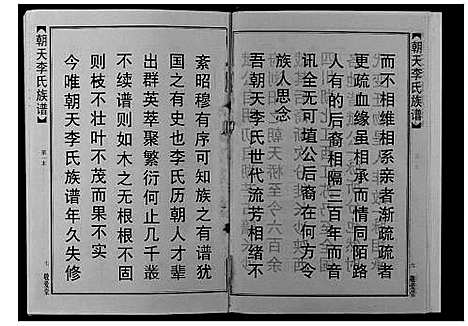 【朝天李氏族谱】
而不相维相系亲者渐疏疏者
更疏血缘虽相承而情同陌路
人有的后裔相隔三百年而音
讯全无可填公后裔在何方令
族人思念
吾朝天李氏世代流芳相绪不
敬爱堂
紊昭穆有序可知族之有谱犹
国之有史也李氏历朝人才辈
出群英萃聚繁衍何止几千叢
不续谱则如木之无根根不固
则枝不壮叶不茂而果不实
今唯朝天李氏族谱年久失修
【朝天李氏族谱】
第一本
七
敬爱堂